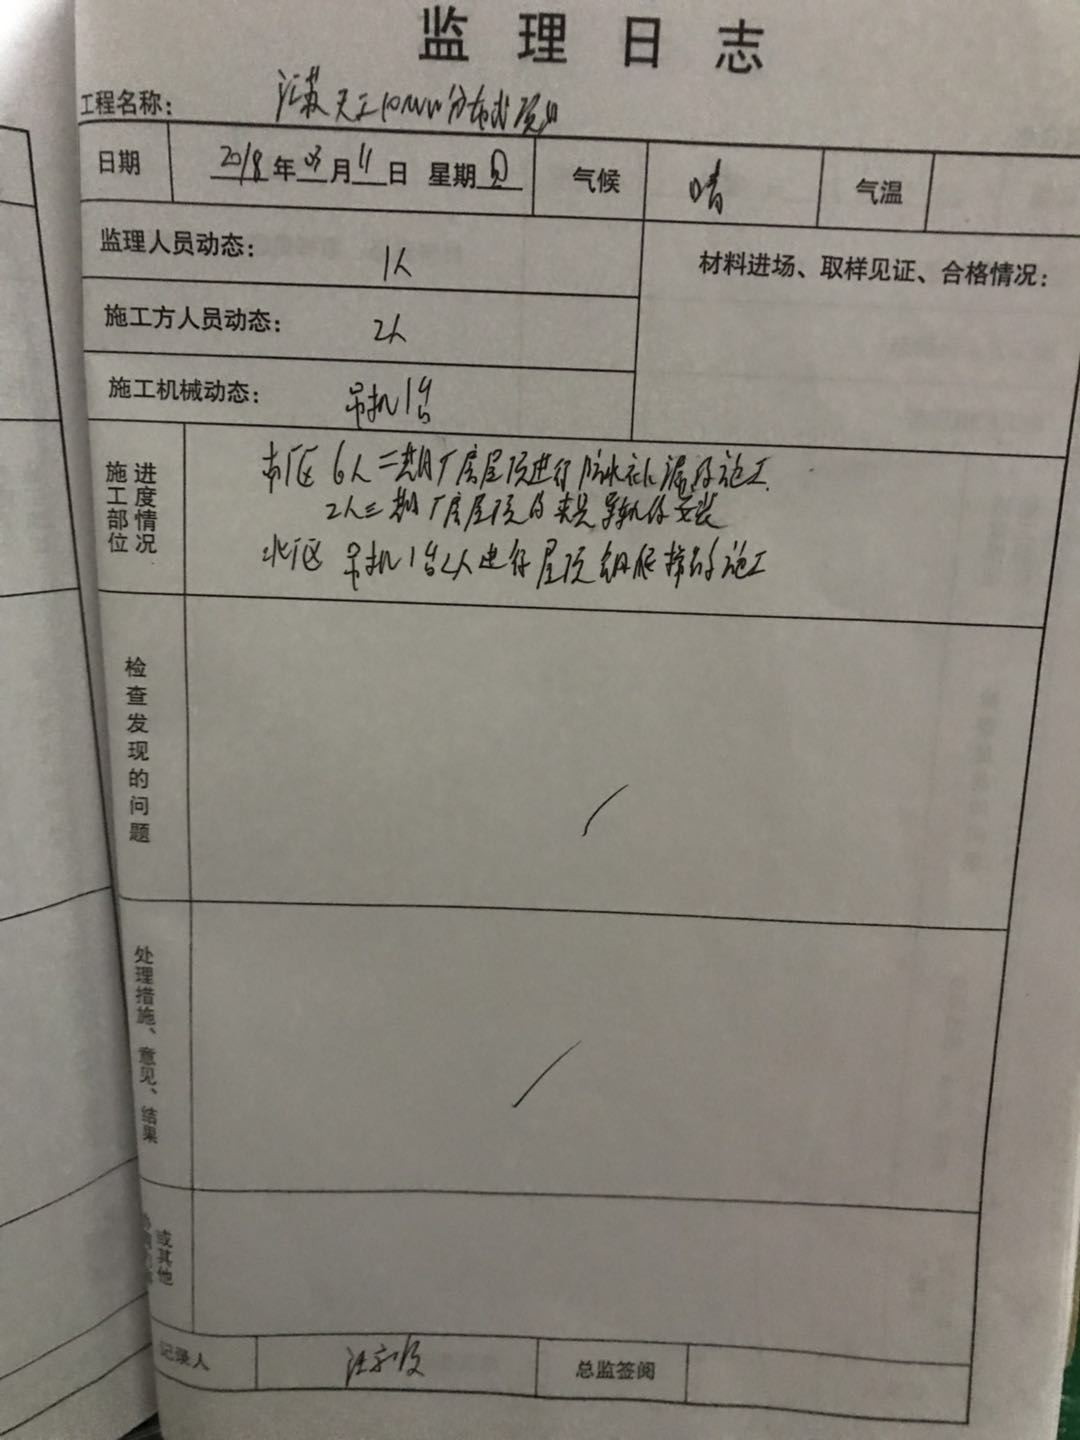 监理日志
工程名称: 江苏天工10MW分布式项目
日期 2018年03月11日 星期日 气候 晴 气温
监理人员动态: 1人 材料进场、取样见证、合格情况:
施工方人员动态: 2人
施工机械动态: 吊机1台
施工部位进度情况
南厂区 6人二期厂房屋顶进行防水补漏的施工.
2人三期厂房屋顶的夹具导轨的安装
北厂区 吊机1台2人进行屋顶钢爬梯的施工
检查发现的问题
处理措施、意见、结果
或其他
记录人 总监签阅